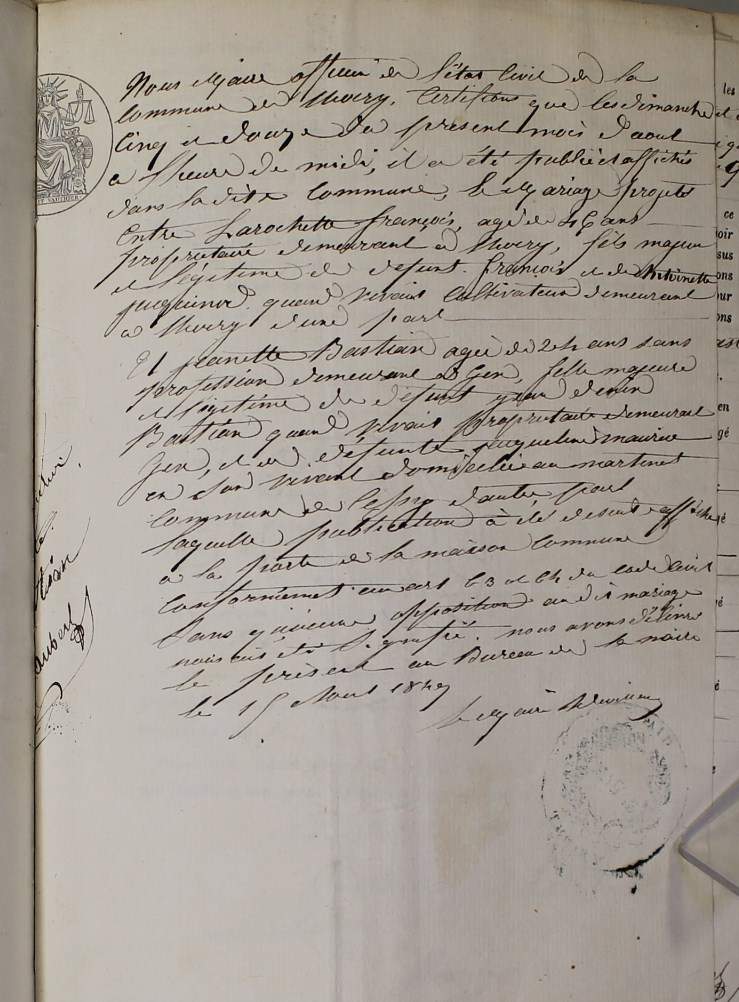 Nous Maire officier de l'état Civil de la
Commune de Thoiry, Certifions que les dimanche
Cinq et douze du présent mois d'aout
a l'heure de midi, il a été publié et affichés
dans la dite Commune, le Mariage projeté
Entre Larochette françois, agé de 46 ans
proprietaire demeurant a Thoiry, fils majeur
et légitime de defunt françois et de Antoinette
quand vivait Cultivateur demeurant
a Thoiry d'une part
Et jeanette Bastian agée de 24 ans sans
profession demeurant a Gex, fille majeure
et légitime de défunt jean denin
Bastian quand vivait proprietaire demeurant
Gex, et de défunte jacqueline maurice
en son vivant domiciliée au martinet
Commune de Cessy d'autre part
laquelle publication à été desuite affichée
a la porte de la maison Commune
Conformement au art 63 et 64 du Code Civil
Sans qu'aucune opposition au dit mariage
nous ait été Signifié. nous avons délivré
le présent au Bureau de la mairie
le 15 Aout 1849
Le Maire
les
ce
oir
sus
ons
our
ons
en
gé